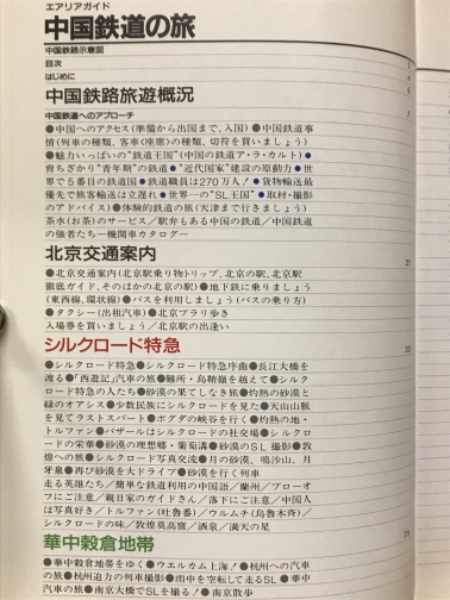 エアリアガイド
中国鉄道の旅
中国鉄路示意図
目次
はじめに
中国鉄路旅遊概況 7
中国鉄道へのアプローチ
●中国へのアクセス(準備から出国まで、入国)●中国鉄道事
情(列車の種類、客車〈座席〉の種類、切符を買いましょう)
●魅力いっぱいの"鉄道王国"(中国の鉄道ア・ラ・カルト)●
育ちざかり"青年期"の鉄道●"近代国家"建設の原動力●世
界で5番目の鉄道国●鉄道職員は270万人!●貨物輸送最
優先で旅客輸送は立遅れ●世界一の"SL王国"●取材・撮影
のアドバイス)●体験的鉄道の旅(天津まで行きましょう)
茶水(お茶)のサービス/駅弁もある中国の鉄道/中国鉄道
の強者たち―機関車カタログ―
北京交通案内 21
●北京交通案内(北京駅乗り物トリップ、北京の駅、北京駅
徹底ガイド、そのほかの北京の駅)●地下鉄に乗りましょう
(東西線、環状線)●バスを利用しましょう(バスの乗り方)
●タクシー(出租汽車)●北京ブラリ歩き
入場券を買いましょう/北京駅の出逢い
シルクロード特急 33
●シルクロード特急●シルクロード特急序曲●長江大橋を
渡る●「西遊記」汽車の旅●難所・烏鞘嶺を越えて●シルク
ロード特急の人たち●砂漠の果てしなき旅●灼熱の砂漠と
緑のオアシス●少数民族にシルクロードを見た●天山山脈
を見てラストスパート●ボグダの峡谷を行く●灼熱の地・
トルファン●バザールはシルクロードの社交場●シルクロ
ードの栄華●砂漠の理想郷・葡萄溝●砂漠のSL撮影●敦
煌への旅●シルクロード写真交流●月の砂漠、鳴沙山、月
牙泉●再び砂漠を大ドライブ●砂漠を行く列車
走る英雄たち/簡単な鉄道利用の中国語/蘭州/ブローオ
フにご注意/親日家のガイドさん/落下にご注意/中国人
は写真好き/トルファン(吐魯番)/ウルムチ(烏魯木斉)/
シルクロードの味/敦煌莫高窟/酒泉/満天の星
華中穀倉地帯 77
●華中穀倉地帯をゆく●ウエルカム上海!●杭州への汽車
の旅●杭州迫力の列車撮影●雨中を空転して走るSL●華中
汽車の旅●南京大橋でSLを撮る!●南京散歩